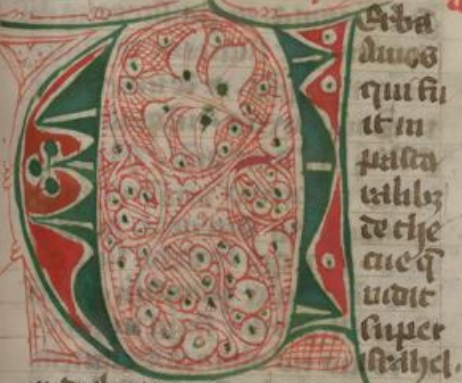 Erba
Amos
qui fu
it in
pasto
ralibꝫ
de the
cue q̄
uidit
super
israhel.